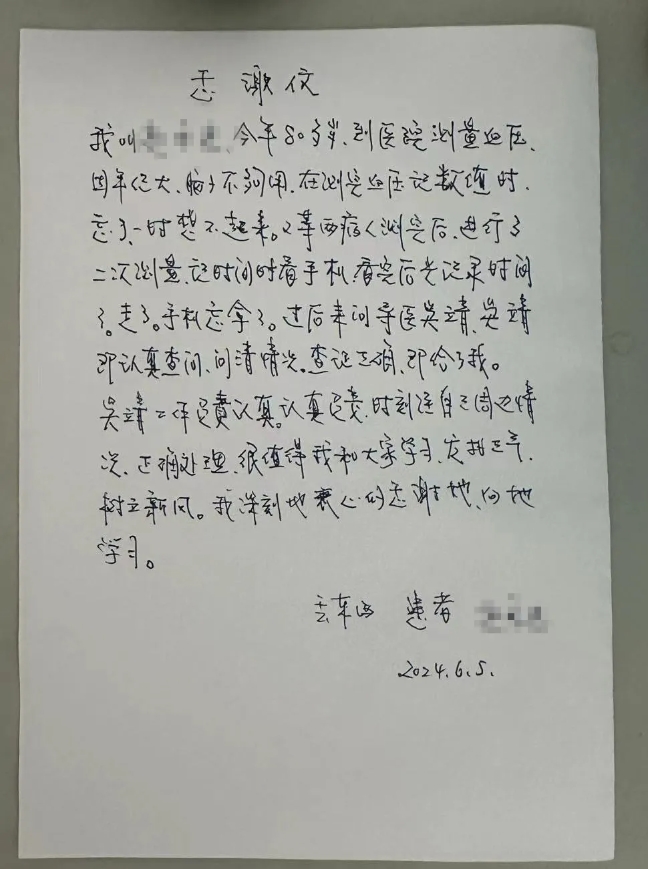 感谢信
我叫 今年80多岁,到医院测量血压,
因年纪大、脑子不够用,在测完血压记数值时,
忘了,一时想不起来。又等两病人测完后,进行了
二次测量,记时间时看手机,看完后光记录时间
了。走了。手机忘拿了。过后来问导医吴靖,吴靖
即认真查问,问清情况。查证正确,即给了我。
吴靖工作负责认真。认真负责,时刻 自己周边情
况,正确处理,很值得我和大家学习,发扬正气,
树立新风。我深刻地衷心的感谢她,向她
学习。
患者
2024.6.5.